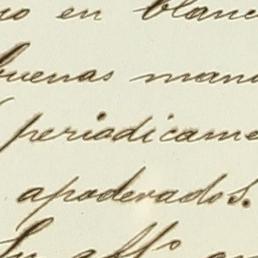 no en blanc
buenas mano
periadicame
apoderados.
Su affº